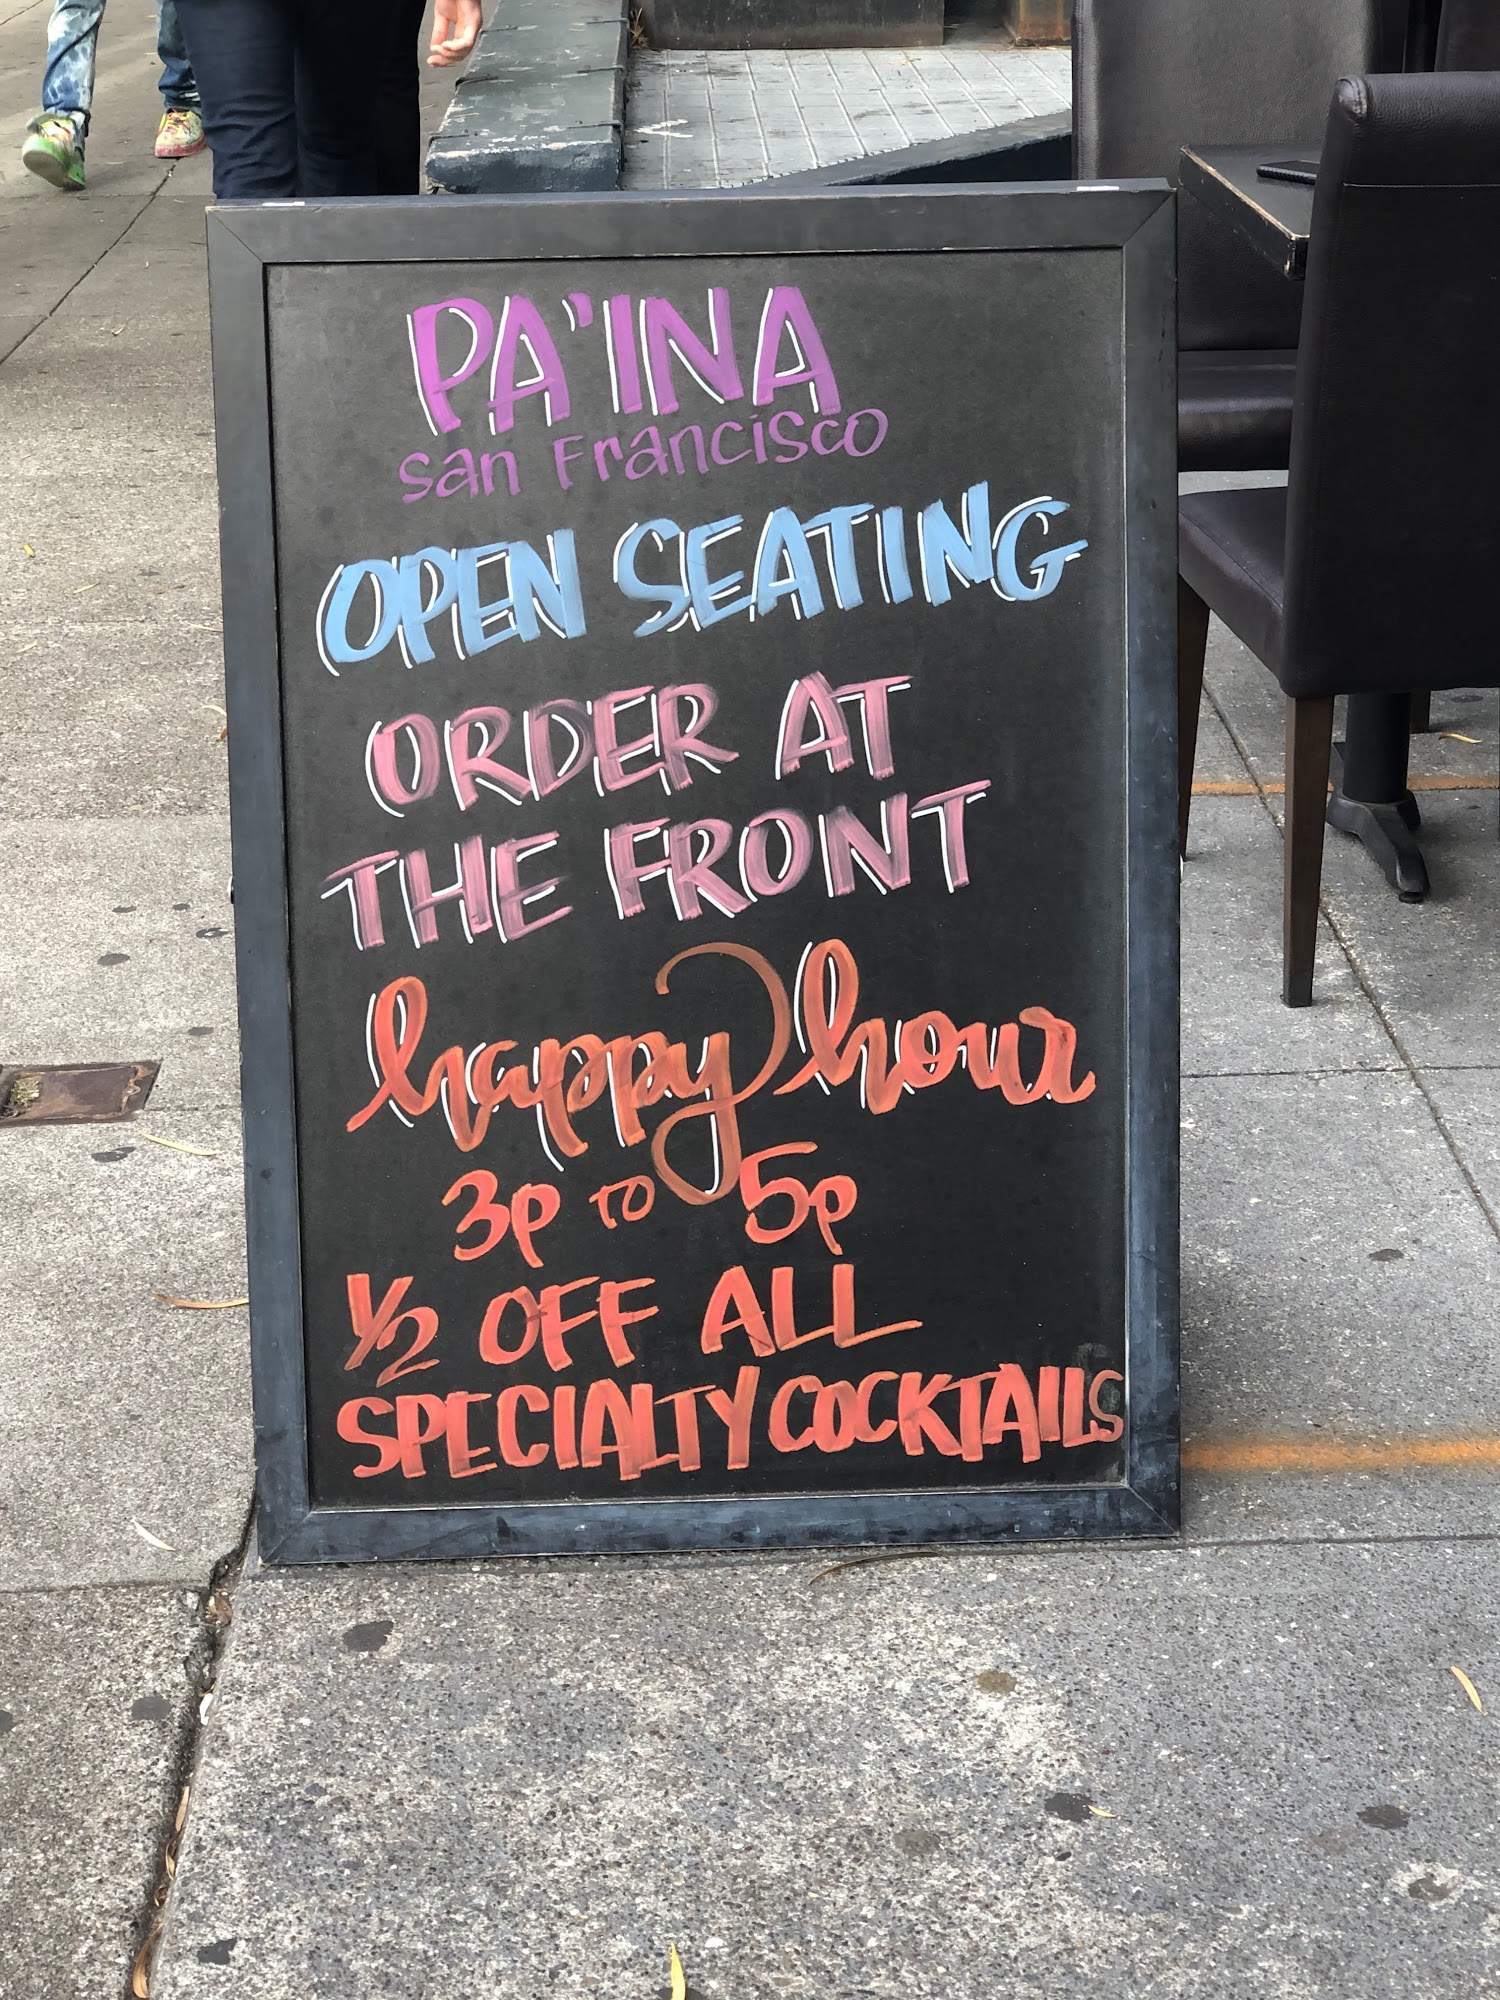 PA'INA
San Francisco
OPEN SEATING
ORDER AT
THE FRONT
happy hour
3p TO 5p
1/2 OFF ALL
SPECIALTY COCKTAILS